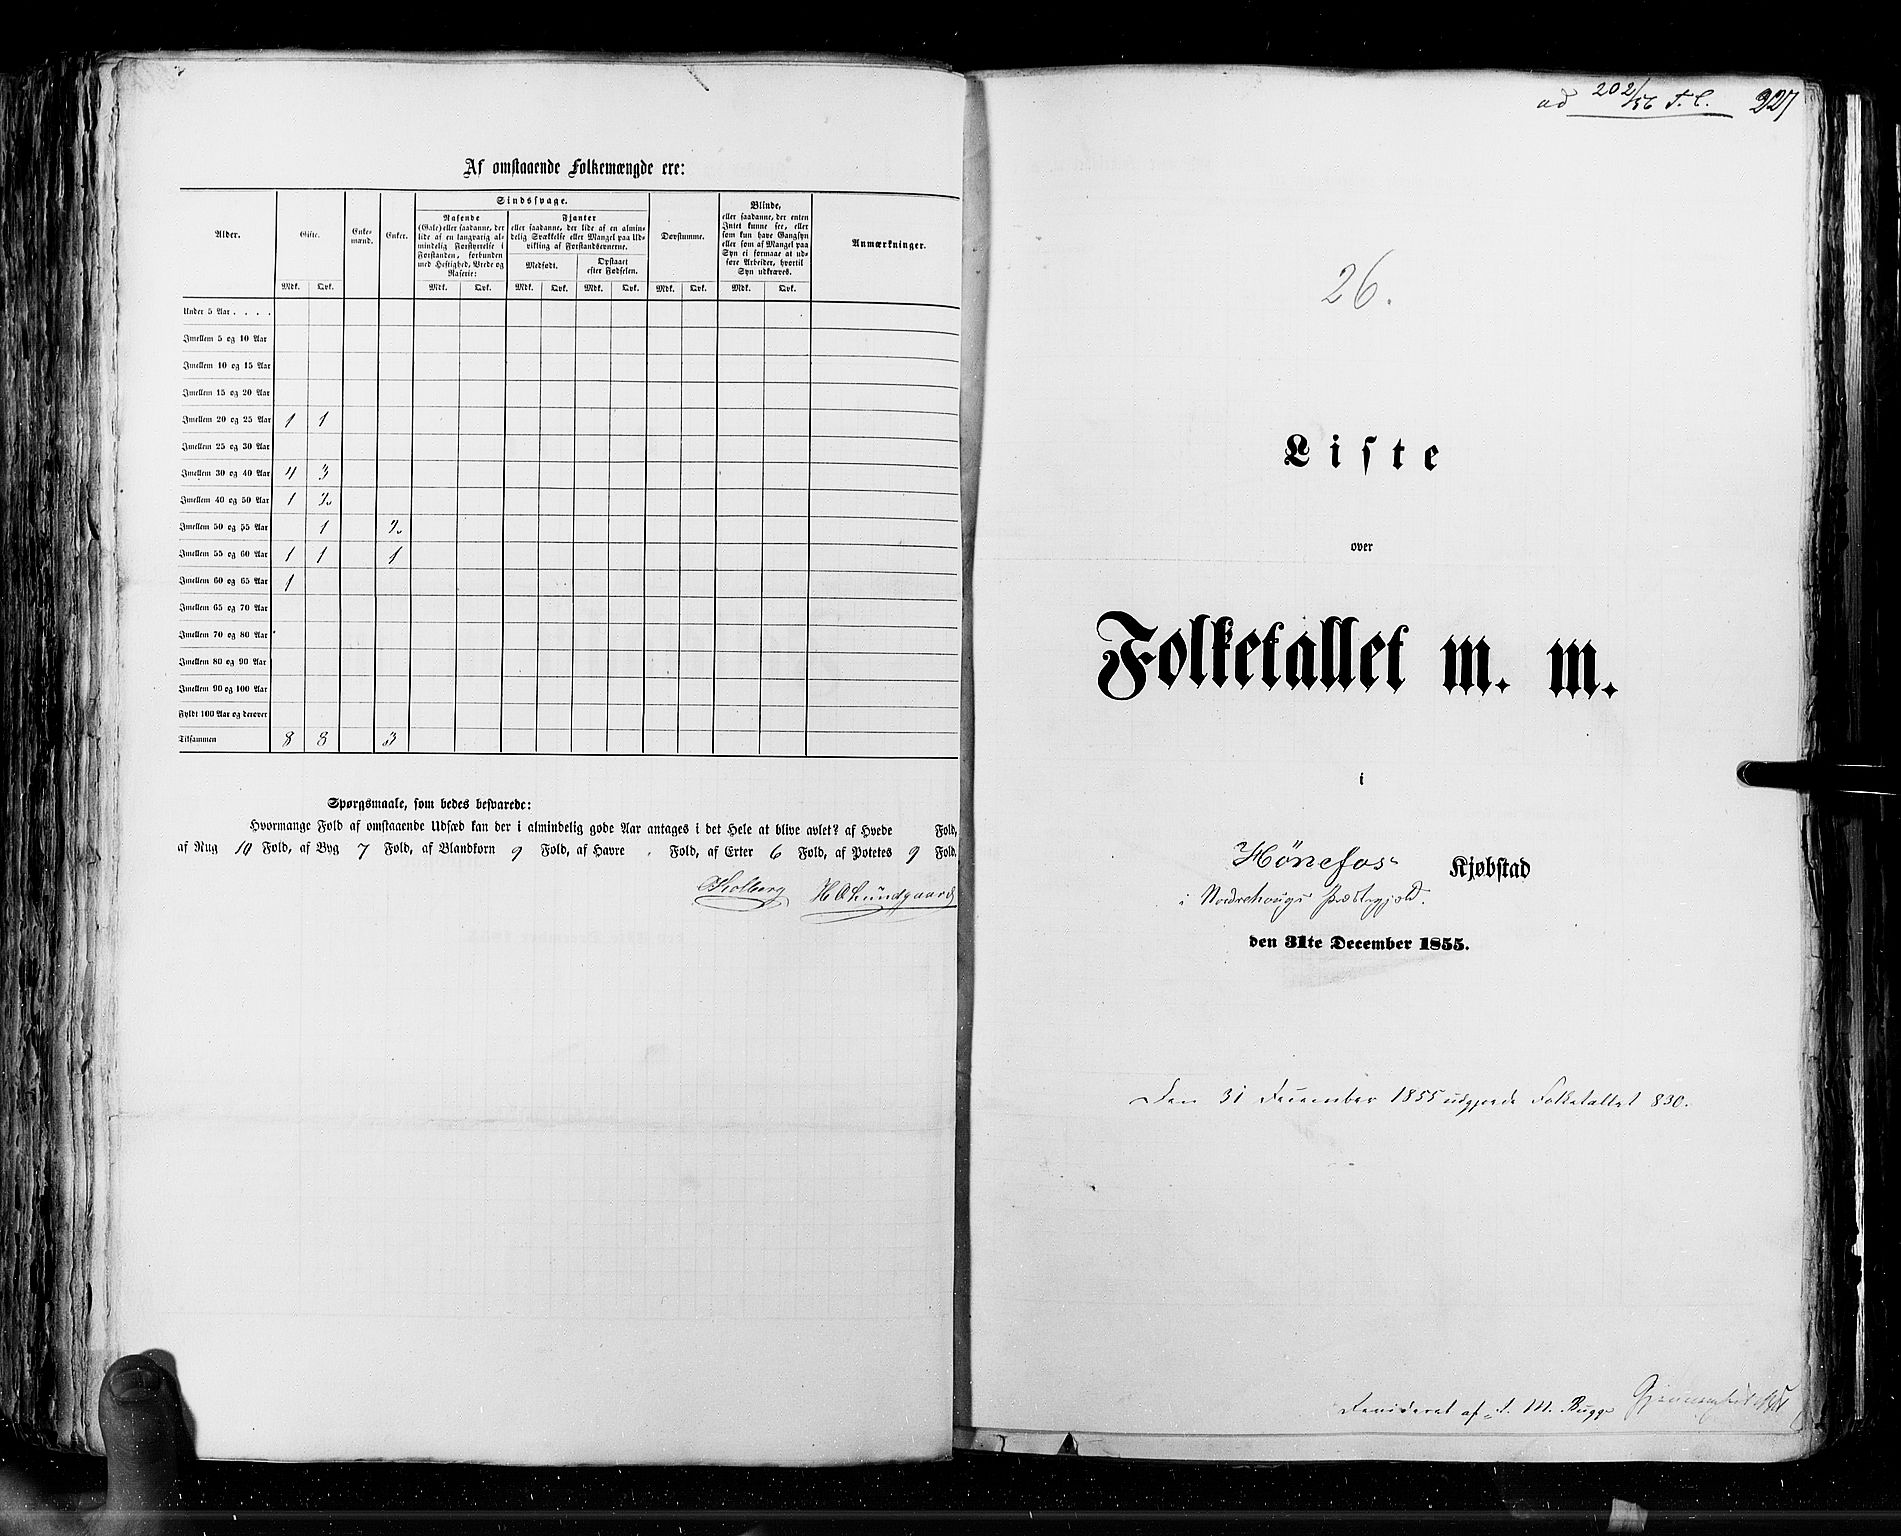 Af omstaaende Folkemængde ere:
Alder. Gifte. Enke-mænd. Enker. Sindssvage. Døvstumme. Blinde, Anmærkninger.
Rasende Fjanter
(Gale) eller saadanne, der lide af en langvarig almindelig Forstyrrelse i Forstanden, forbunden med Heftighed, Vrede og Raserie:
eller saadanne, der lide af en almindelig Svækkelse eller Mangel paa Udvikling af Forstandsevnerne.
Medfødt. Opstaaet efter Fødselen.
eller saadanne, der enten Intet kunne see, eller som kun have Gangsyn eller som af Mangel paa Syn ei formaae at udføre Arbeider, hvortil Syn udkræves.
Mdk. Qvk. Mdk. Qvk. Mdk. Qvk. Mdk. Qvk. Mdk. Qvk. Mdk. Qvk.
Under 5 Aar . . . .
Imellem 5 og 10 Aar
Imellem 10 og 15 Aar
Imellem 15 og 20 Aar
Imellem 20 og 25 Aar 1 1
Imellem 25 og 30 Aar
Imellem 30 og 40 Aar 4 3
Imellem 40 og 50 Aar 1 2
Imellem 50 og 55 Aar 1 2
Imellem 55 og 60 Aar 1 1 1
Imellem 60 og 65 Aar 1
Imellem 65 og 70 Aar
Imellem 70 og 80 Aar
Imellem 80 og 90 Aar
Imellem 90 og 100 Aar
Fyldt 100 Aar og derover
Tilsammen 8 8 3
Spørgsmaale, som bedes besvarede:
Hvormange Fold af omstaaende Udsæd kan der i almindelig gode Aar antages i det Hele at blive avlet? af Hvede Fold,
af Rug 10 Fold, af Byg 7 Fold, af Blandkorn 9 Fold, af Havre . Fold, af Erter 6 Fold, af Potetes 9 Fold.
Kolberg H O Lundgaard
ad 202/56 T. C. 227
26.
Liste
over
Folketallet m. m.
i
Hönefos Kjøbstad
i Nordrehougs Præstegjeld.
den 31te December 1855.
Den 31 December 1855 udgjorde Folketallet 830.
Revideret af M. Bugge